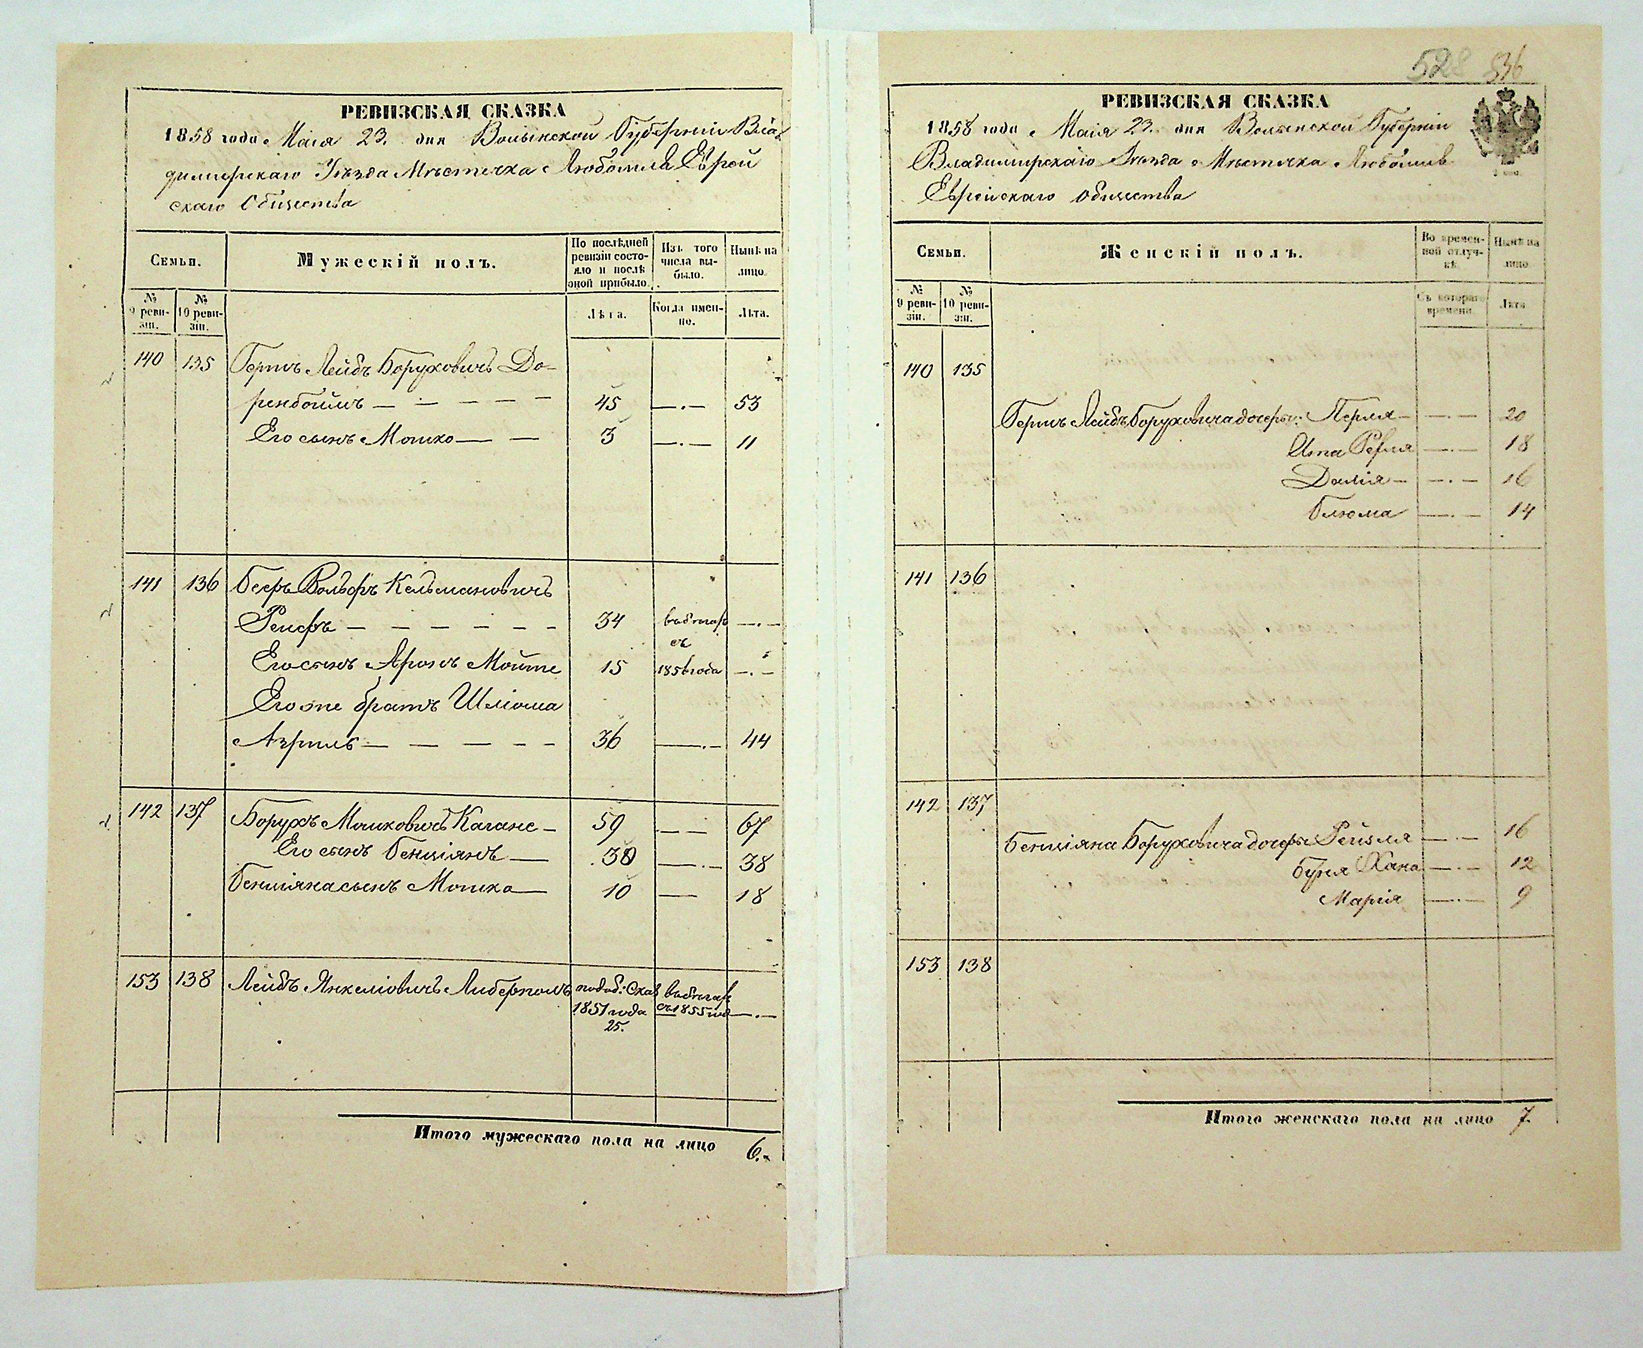 РЕВИЗСКАЯ СКАЗКА
1858 года Маія 23. дня Волынской Губерніи Вла
димирскаго Уѣзда Мѣстечка Любомля Еврей
скаго Общества
Семьи.
Мужескій полъ.
По послѣдней ревизіи состояло и послѣ оной прибыло.
Изъ того числа выбыло.
Нынѣ на лицо.
№ 9 ревизіи.
№ 10 ревизіи.
Лѣта.
Когда именно.
Лѣта.
140 135 Гершъ Лейбъ Боруховичъ До-
ренбоймъ — — — — — 45 —.— 53
Его сынъ Мошко — — 3 —.— 11
141 136 Беръ Вольфъ Кельмановичъ
— — — — — — 34 —.—
съ
Его сынъ Аронъ 15 1856 года —.—
Его же братъ Шліома
Азриль — — — — — 36 —.— 44
142 137 Борухъ Мошковичъ Кагане — 59 — — 67
Его сынъ Бенціянъ — 30 —.— 38
Бенціяна сынъ Мошко — 10 — — 18
153 138 Лейбъ Янкеліовичъ
1851 года съ 1855 —.—
25.
Итого мужескаго пола на лицо 6.
528 836
РЕВИЗСКАЯ СКАЗКА
1858 года Маія 23. дня Волынской Губерніи
Владимирскаго Уѣзда Мѣстечка Любомля
Еврейскаго Общества
Семьи.
Женскій полъ.
Во временной отлучкѣ.
Нынѣ на лицо.
№ 9 ревизіи.
№ 10 ревизіи.
Съ котораго времени.
Лѣта
140 135
Герша Лейбъ Боруховича дочери: Перля — —.— 20
Ита Рейля —.— 18
—.— 16
Блюма —.— 14
141 136
142 137
Бенціяна Боруховича дочери Рейзля —.— 16
Буня Хана —.— 12
Марія —.— 9
153 138
Итого женскаго пола на лицо 7.